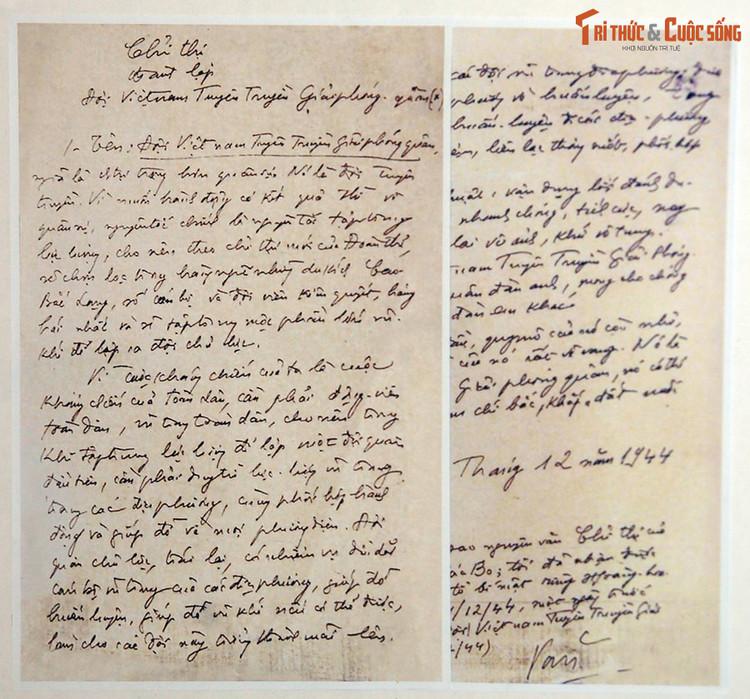 TRI THỨC & CUỘC SỐNG
KHƠI NGUỒN TRÍ TUỆ
Chỉ thị
thành lập
Đội Việt nam Tuyên Truyền Giải phóng quân
1- Tên: Đội Việt nam Tuyên Truyền Giải phóng quân,
nghĩa là chính trị trọng hơn quân sự. Nó là đội tuyên
truyền. Vì muốn hành động có kết quả thì về
quân sự, nguyên tắc chính là nguyên tắc tập trung
lực lượng, cho nên, theo chỉ thị mới của Đoàn thể,
sẽ chọn lọc trong hàng ngũ những du kích Cao
Bắc Lạng, số cán bộ và đội viên kiên quyết, hăng
hái nhất và sẽ tập trung một phần lớn vũ
khí để lập ra đội chủ lực.
Vì cuộc kháng chiến của ta là cuộc
kháng chiến của toàn dân, cần phải động viên
toàn dân, vũ trang toàn dân, cho nên trong
khi tập trung lực lượng để lập một đội quân
đầu tiên, cần phải duy trì lực lượng vũ trang
trong các địa phương, cùng phối hợp hành
động và giúp đỡ về mọi phương diện. Đội
quân chủ lực trái lại, có nhiệm vụ dìu dắt
cán bộ vũ trang của các địa phương, giúp đỡ
huấn luyện, giúp đỡ vũ khí nếu có thể được,
làm cho các đội này trưởng thành mãi lên.
các đội vũ trang địa phương,
về huấn luyện,
huấn luyện các địa phương
liên lạc thông suốt, phối hợp
thuật: vận dụng lối đánh du
nhanh chóng, tích cực, nay
lai vô ảnh, khứ vô tung.
nam Tuyên Truyền Giải Phóng
quân đàn anh, mong cho chóng
đàn em khác
quy mô của nó còn nhỏ,
của nó rất vẻ vang. Nó là
Giải phóng quân, nó có thể
bắc, khắp đất nước
Tháng 12 năm 1944
sao nguyên văn Chỉ thị của
tôi đã nhận được
bí mật rừng Hoàng hoa
/12/44, một ngày trước
đội Việt nam Tuyên Truyền Giải
/44)
Văn